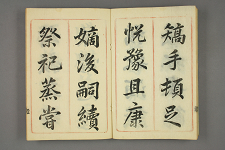 矯手頓足
悅豫且康
嫡後嗣續
祭祀蒸嘗